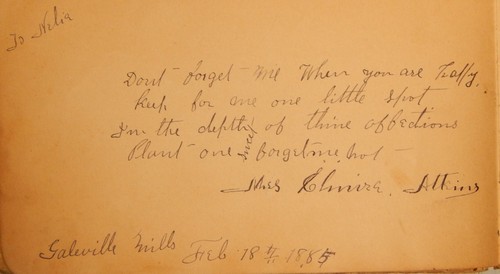 To Nelia
Dont forget me When you are happy.
keep for me one little spot
In the depths of thine affections
Plant one sweet forget me not -
Miss Elmira Atkins
Galeville Mills Feb 18th 1885